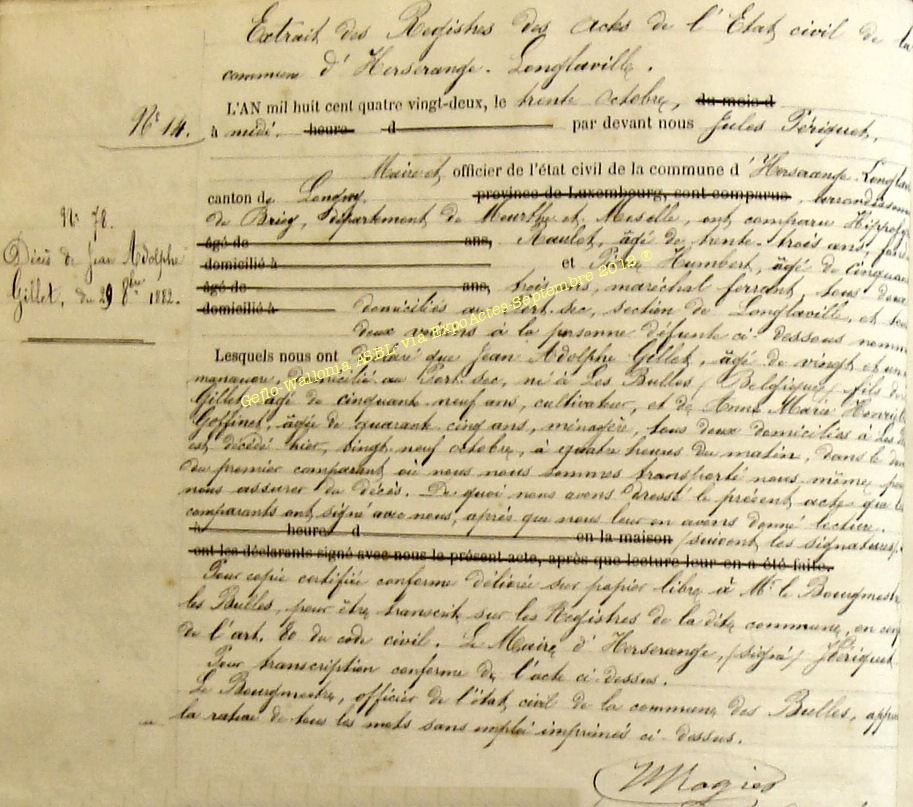 Extrait des Registres des actes de l'Etat civil de la
commune d'Herserange-Longlaville.
N° 14.
L'AN mil huit cent quatre vingt-deux, le trente octobre, du mois d
à midi, heure d par devant nous Jules Périquet,
Maire et officier de l'état civil de la commune d'Herserange-Longlav
canton de Longwy province de Luxembourg, sont comparus, arrondissem
de Briey, département de Meurthe et Moselle, ont comparu Hippoly
âgé de ans, Maulet, âgé de trente-trois ans,
domicilié à et Humbert, âgé de cinquan
âgé de ans, trois ans, maréchal ferrant, tous deux
domicilié à domiciliés au Port-sec, section de Longlaville, et
deux voisins à la personne défunte ci-dessous nomm
N° 78.
Décès de Jean Adolphe
Gillet, du 29 8bre 1882.
Lesquels nous ont déclaré que Jean Adolphe Gillet, âgé de vingt et un
manœuvre, domicilié au Port-sec, né à Les Bulles (Belgique) fils de
Gillet âgé de cinquante neuf ans, cultivateur, et de Anne Marie Henri
Goffinet, âgée de quarante cinq ans, ménagère, tous deux domiciliés à Les
est décédé hier, vingt neuf octobre, à quatre heures du matin, dans le
du premier comparant où nous nous sommes transporté nous même, po
nous assurer du décès. De quoi nous avons dressé le présent acte que l
comparants ont signé avec nous, après que nous leur en avons donné lecture.
à heure d en la maison (suivent les signatures)
ont les déclarants signé avec nous le présent acte, après que lecture leur en a été faite.
Pour copie certifiée conforme délivrée sur papier libre à Mr le Bourgmestr
les Bulles, pour être transcrit sur les Registres de la dite commune, en
de l'art. 80 du code civil. Le Maire d'Herserange, (signé) Périquet
Pour transcription conforme de l'acte ci-dessus.
Le Bourgmestre, officier de l'état civil de la commune des Bulles, appr
la rature de tous les mots sans emploi imprimés ci-dessus.
Magies
Geño-Wallonia ASBL via ExpoActes-Septembre 2012 ®